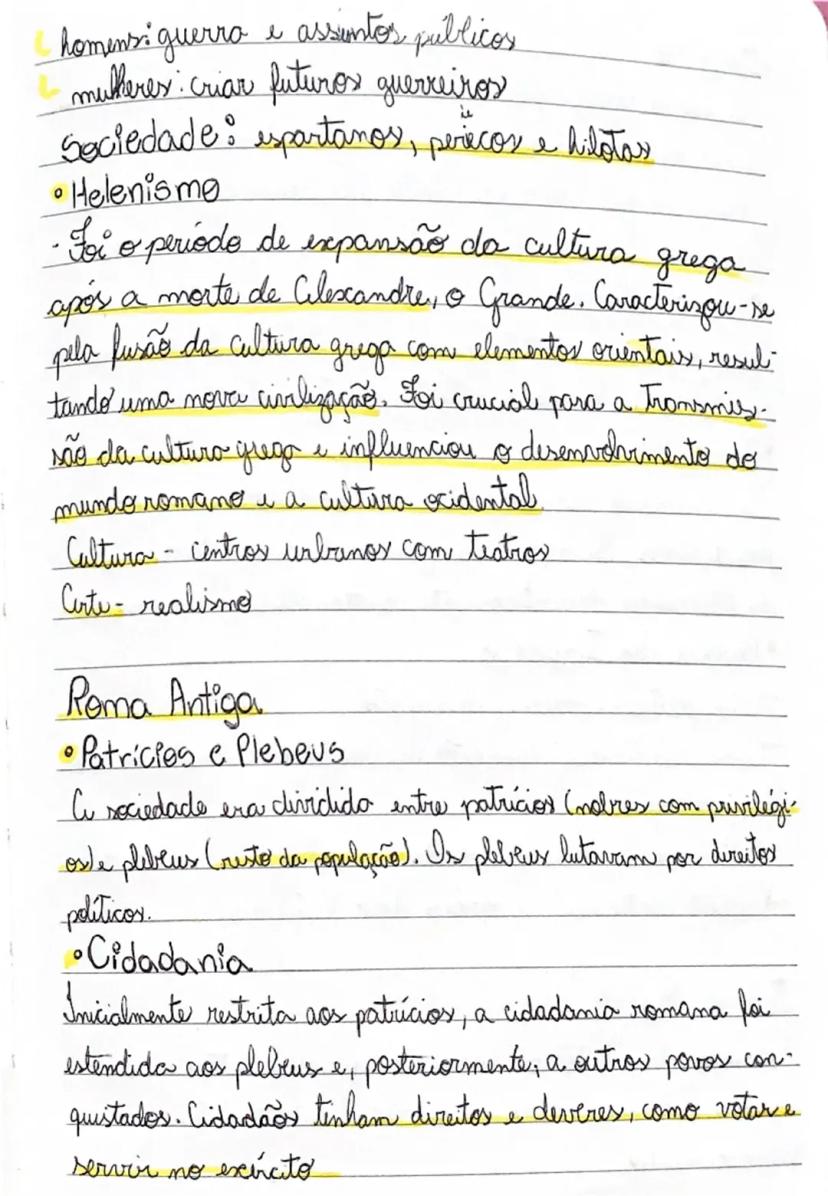 homens: guerra e assuntos públicos
mulheres: criar futuros guerreiros
Sociedade: espartanos, periecos e hilotas
• Helenismo
· Foi o período de expansão da cultura grega
após a morte de Alexandre, o Grande. Caracterizou-se
pela fusão da cultura grega com elementos orientais, resul-
tando uma nova civilização. Foi crucial para a Transmis-
são da cultura grega e influenciou o desenvolvimento do
mundo romano e a cultura ocidental
Cultura - centros urbanos com teatros
Arte - realismo
Roma Antiga
• Patrícios e Plebeus
A sociedade era dividida entre patrícios (nobres com privilégi-
os) e plebeus (resto da população). Os plebeus lutavam por direitos
políticos.
• Cidadania
Inicialmente restrita aos patrícios, a cidadania romana foi
estendida aos plebeus e, posteriormente, a outros povos con-
quistados. Cidadãos tinham direitos e deveres, como votar e
servir no exército